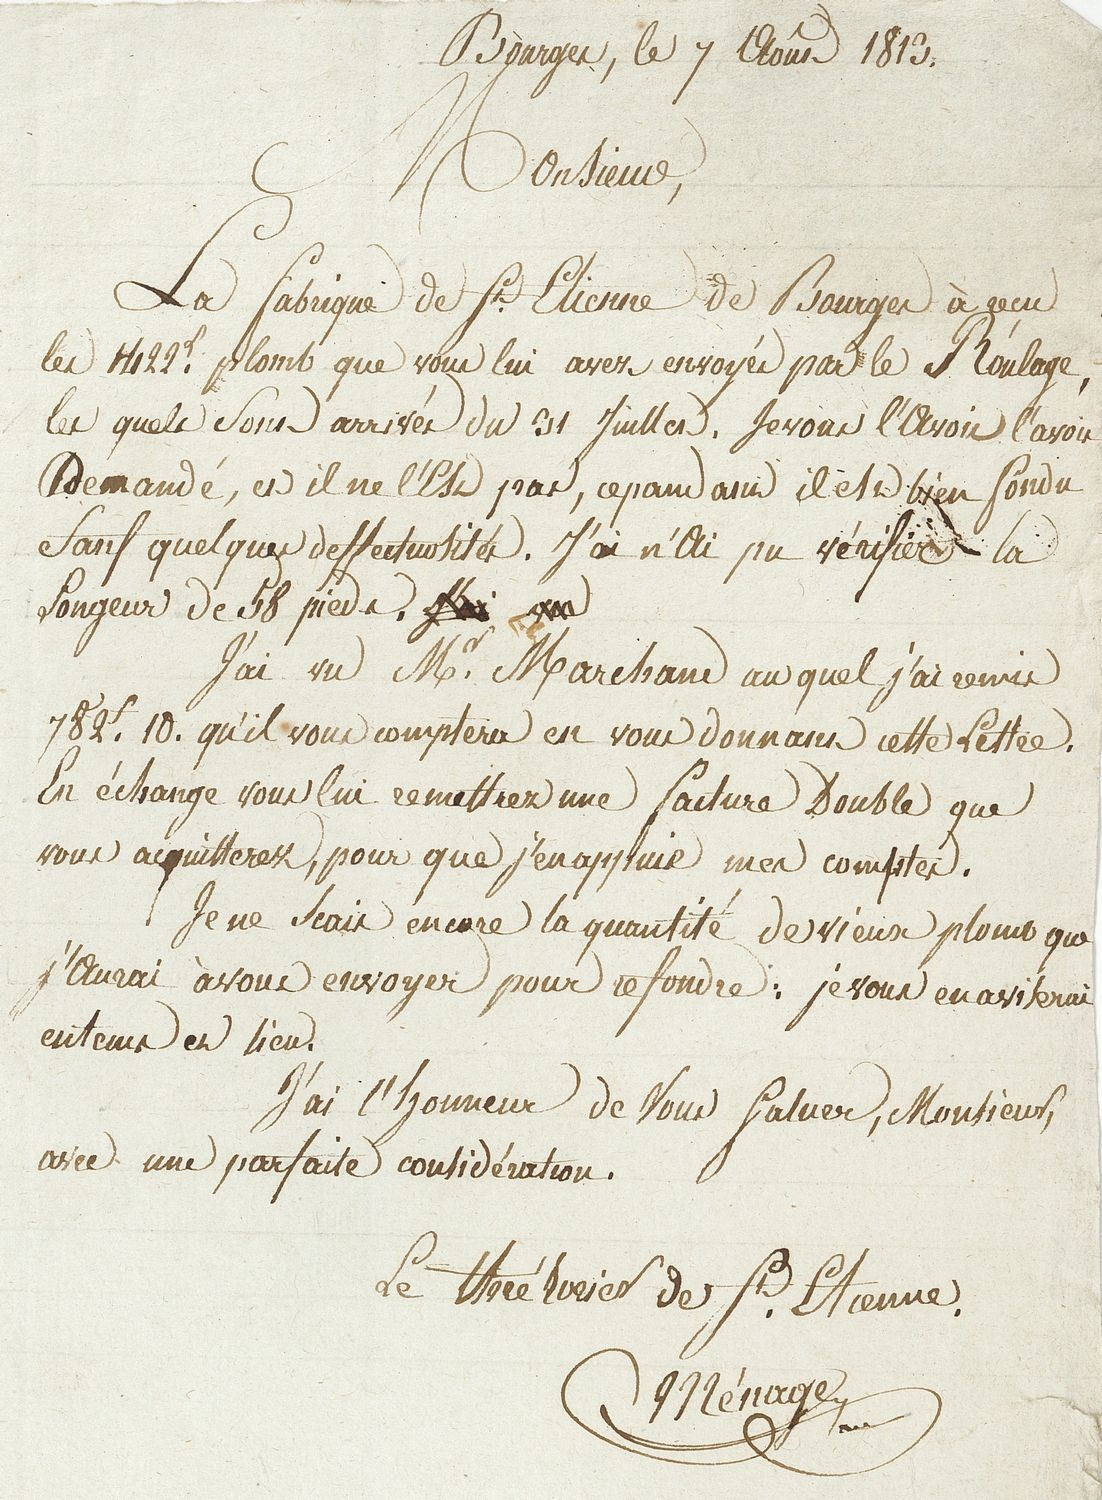 Bourges, le 7 Août 1813.
Monsieur,
La fabrique de St. Etienne de Bourges à recu
les 1422 l. plomb que vous lui avez envoyés par le Roulage,
les quels sont arrivés du 31 Juillet. Je vous l'Avoir l'avoir
Demandé, et il ne l'Est pas, cepandant il est bien fondu
Sauf quelques deffectuosités. J'ai n'Ai pu vérifier la
Longeur de 58 pieds.
J'ai vu Mr. Marchand au quel j'ai remis
782 f. 10. qu'il vous comptera en vous donnant cette Lettre.
En échange vous lui remettrez une facture Double que
vous acquitterez, pour que j'en appuie mes comptes.
Je ne scais encore la quantité de vieux plomb que
j'Aurai à vous envoyer pour refondre : je vous en aviserai
en tems et lieu.
J'ai l'honneur de Vous saluer, Monsieur,
avec une parfaite considération.
Le thrésorier de St. Etienne.
Ménage